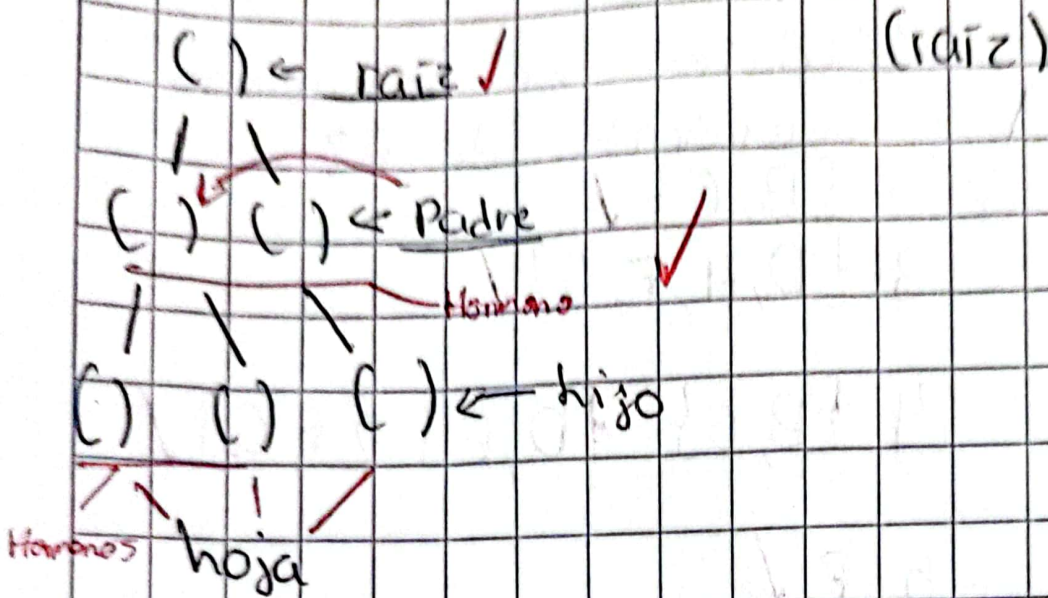 ( ) ← raiz ✓
(raíz)
( ) ( ) ← Padre ✓
Hermano
( ) ( ) ( ) ← hijo
Hermanos
hoja